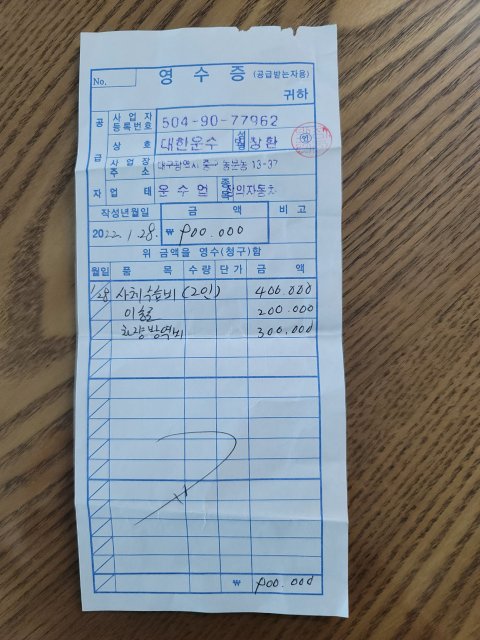 No.
영 수 증 (공급받는자용)
귀하
공 급 자
사업자 등록번호 504-90-77962
상 호 대한운수 성명 창환
사업장 주소 대구광역시 중구 동문동 13-37
업 태 운수업 종목 의자동차
작성년월일 금 액 비 고
2022. 1. 28. ₩ 900.000
위 금액을 영수(청구)함
월일 품 목 수량 단가 금 액
1/28 사체수습비 (2인) 400.000
이송료 200.000
차량방역비 300.000
₩ 900.000